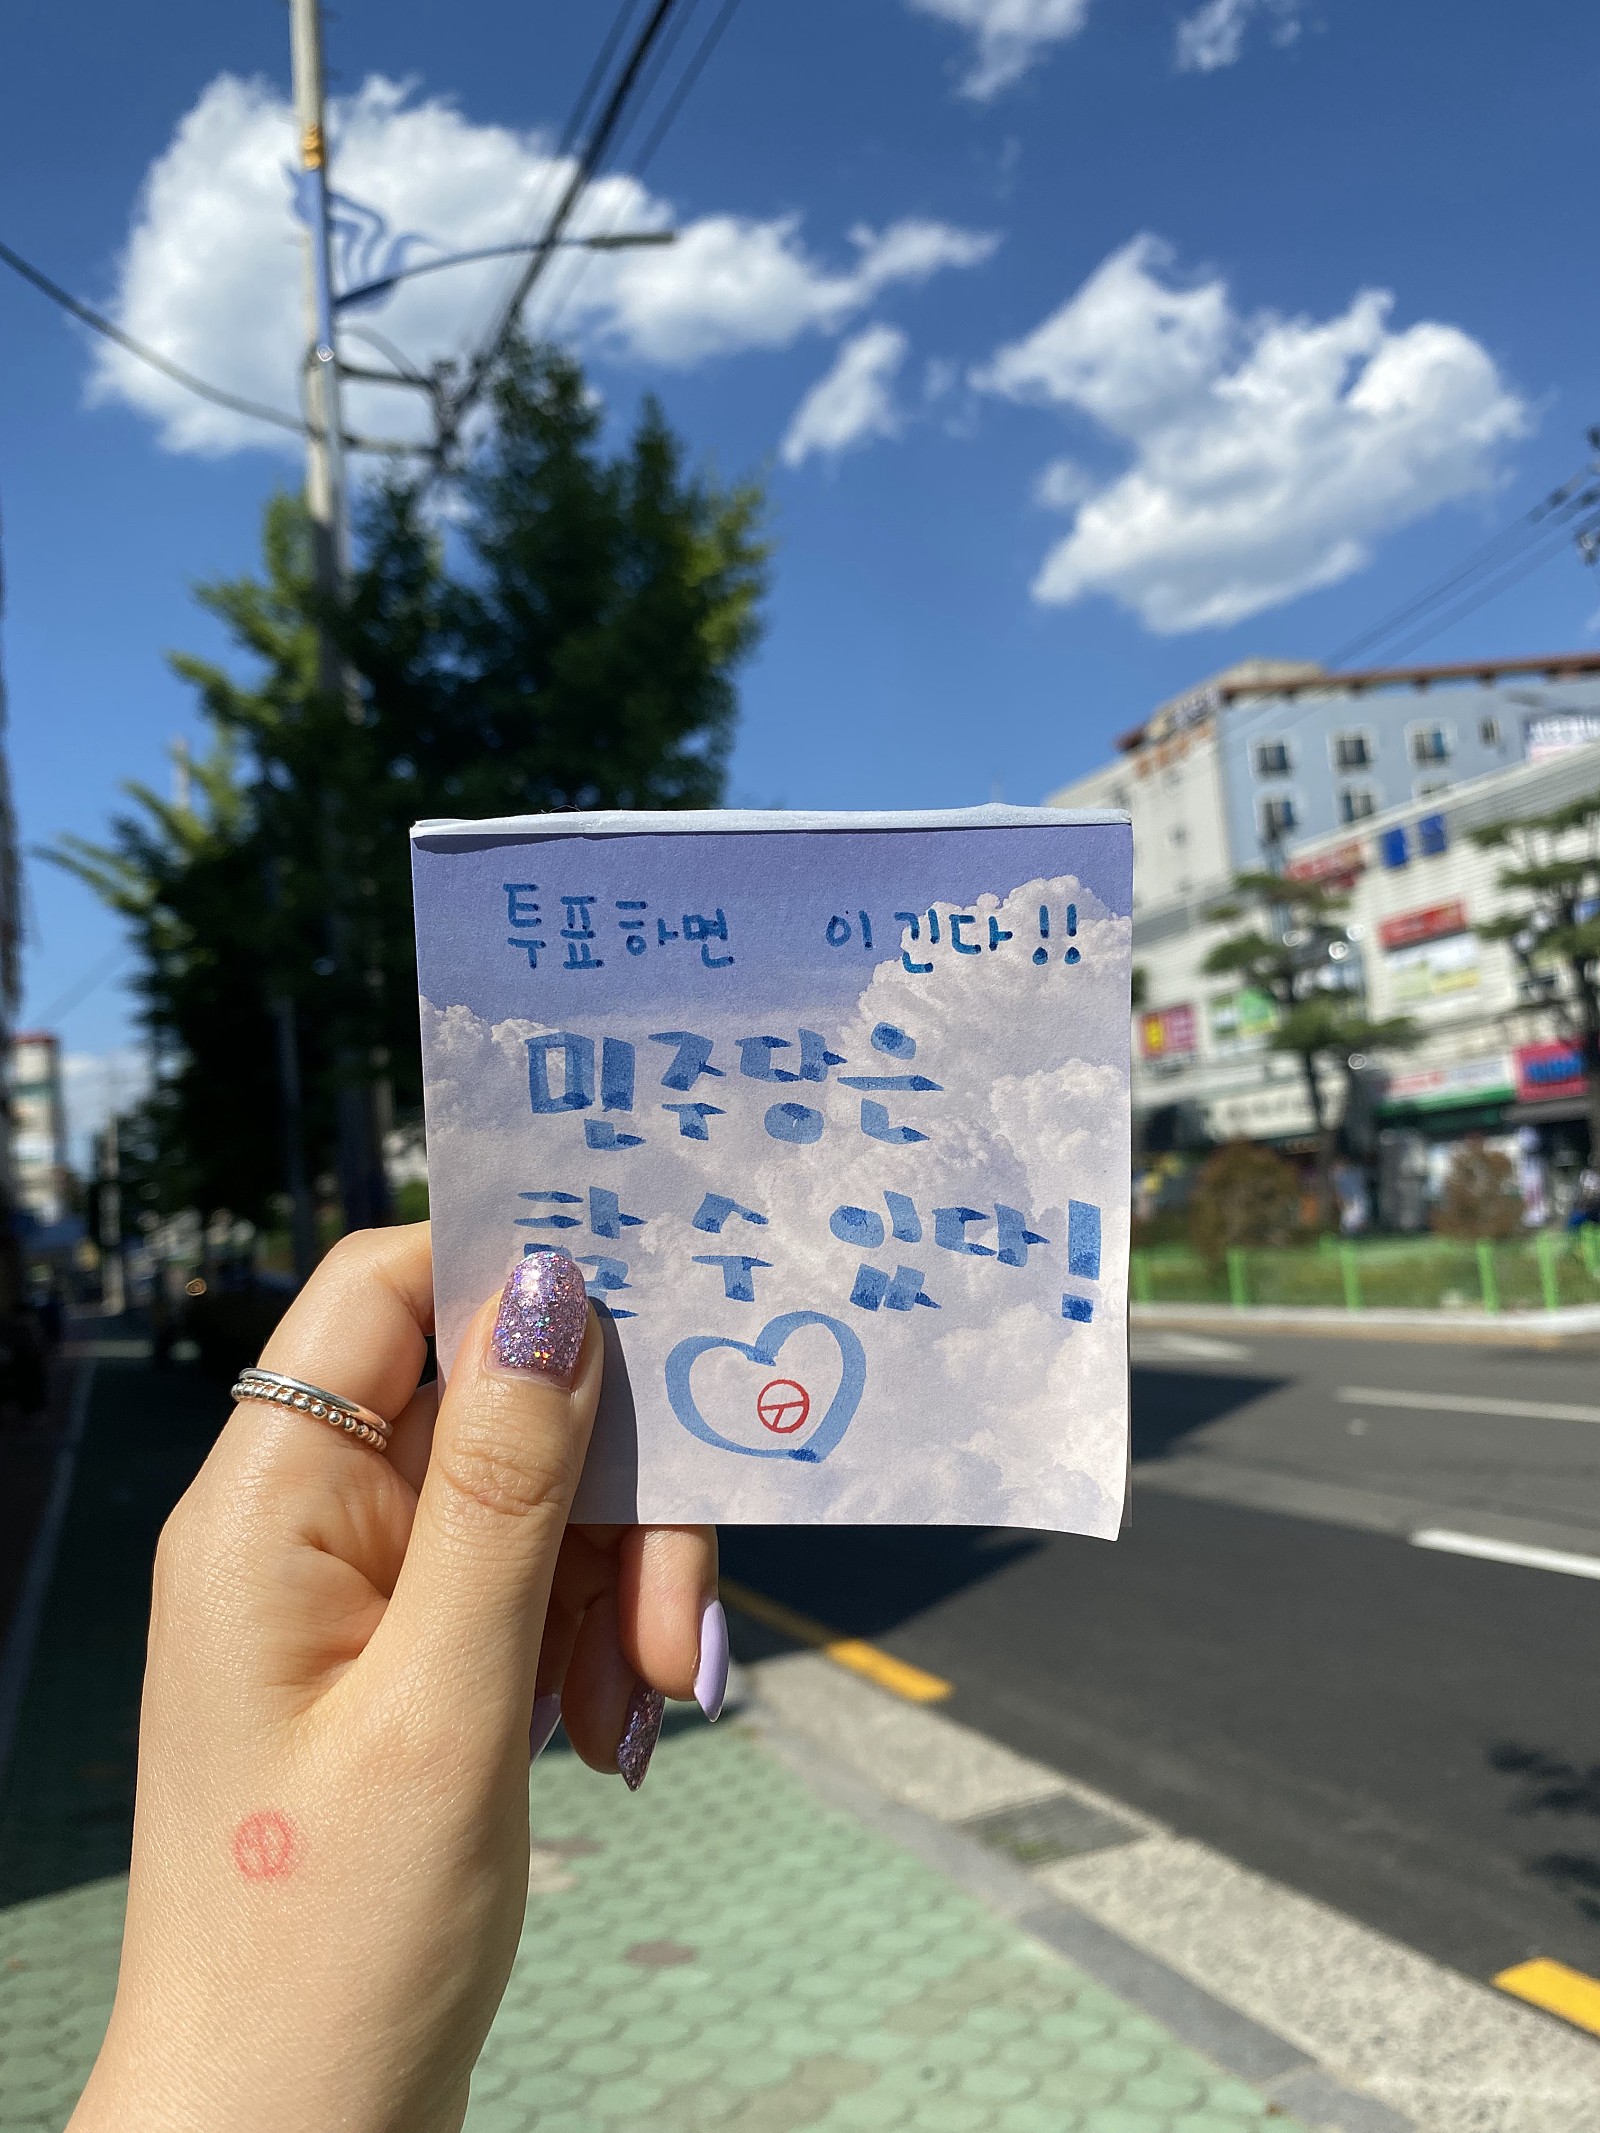 투표하면 이긴다!!
민주당은
할 수 있다!